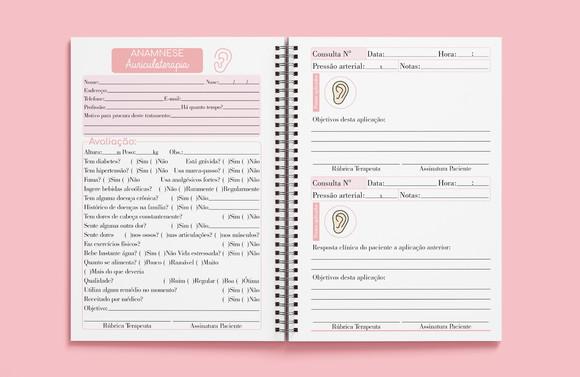 ANAMNESE
Auriculoterapia
Nome: Nasc: / /
Endereço:
Telefone: E-mail:
Profissão: Há quanto tempo?
Motivo para procura deste tratamento:
Avaliação:
Altura: m Peso: kg Obs.:
Tem diabetes? ( )Sim ( )Não Está grávida? ( )Sim ( )Não
Tem hipertensão? ( )Sim ( )Não Usa marca-passo? ( )Sim ( )Não
Fuma? ( )Sim ( )Não Usa analgésicos fortes? ( )Sim ( )Não
Ingere bebidas alcoólicas? ( )Não ( )Raramente ( )Regularmente
Tem alguma doença crônica? ( )Sim ( )Não
Histórico de doenças na família? ( )Sim ( )Não
Tem dores de cabeça constantemente? ( )Sim ( )Não
Sente alguma outra dor? ( )Sim ( )Não
Sente dores ( )nos ossos? ( )nas articulações? ( )nos músculos?
Faz exercícios físicos? ( )Sim ( )Não
Bebe bastante água? ( )Sim ( )Não Vida estressada? ( )Sim ( )Não
Quanto se alimenta? ( )Pouco ( )Razoável ( )Muito
( )Mais do que deveria
Qualidade? ( )Ruim ( )Regular ( )Boa ( )Ótima
Utiliza algum remédio no momento? ( )Sim ( )Não
Receitado por médico? ( )Sim ( )Não
Objetivo:
Rúbrica Terapeuta Assinatura Paciente
Consulta Nº Data: Hora: :
Pressão arterial: x Notas:
Objetivos desta aplicação:
Rúbrica Terapeuta Assinatura Paciente
Consulta Nº Data: Hora: :
Pressão arterial: x Notas:
Resposta clínica do paciente a aplicação anterior:
Objetivos desta aplicação:
Rúbrica Terapeuta Assinatura Paciente